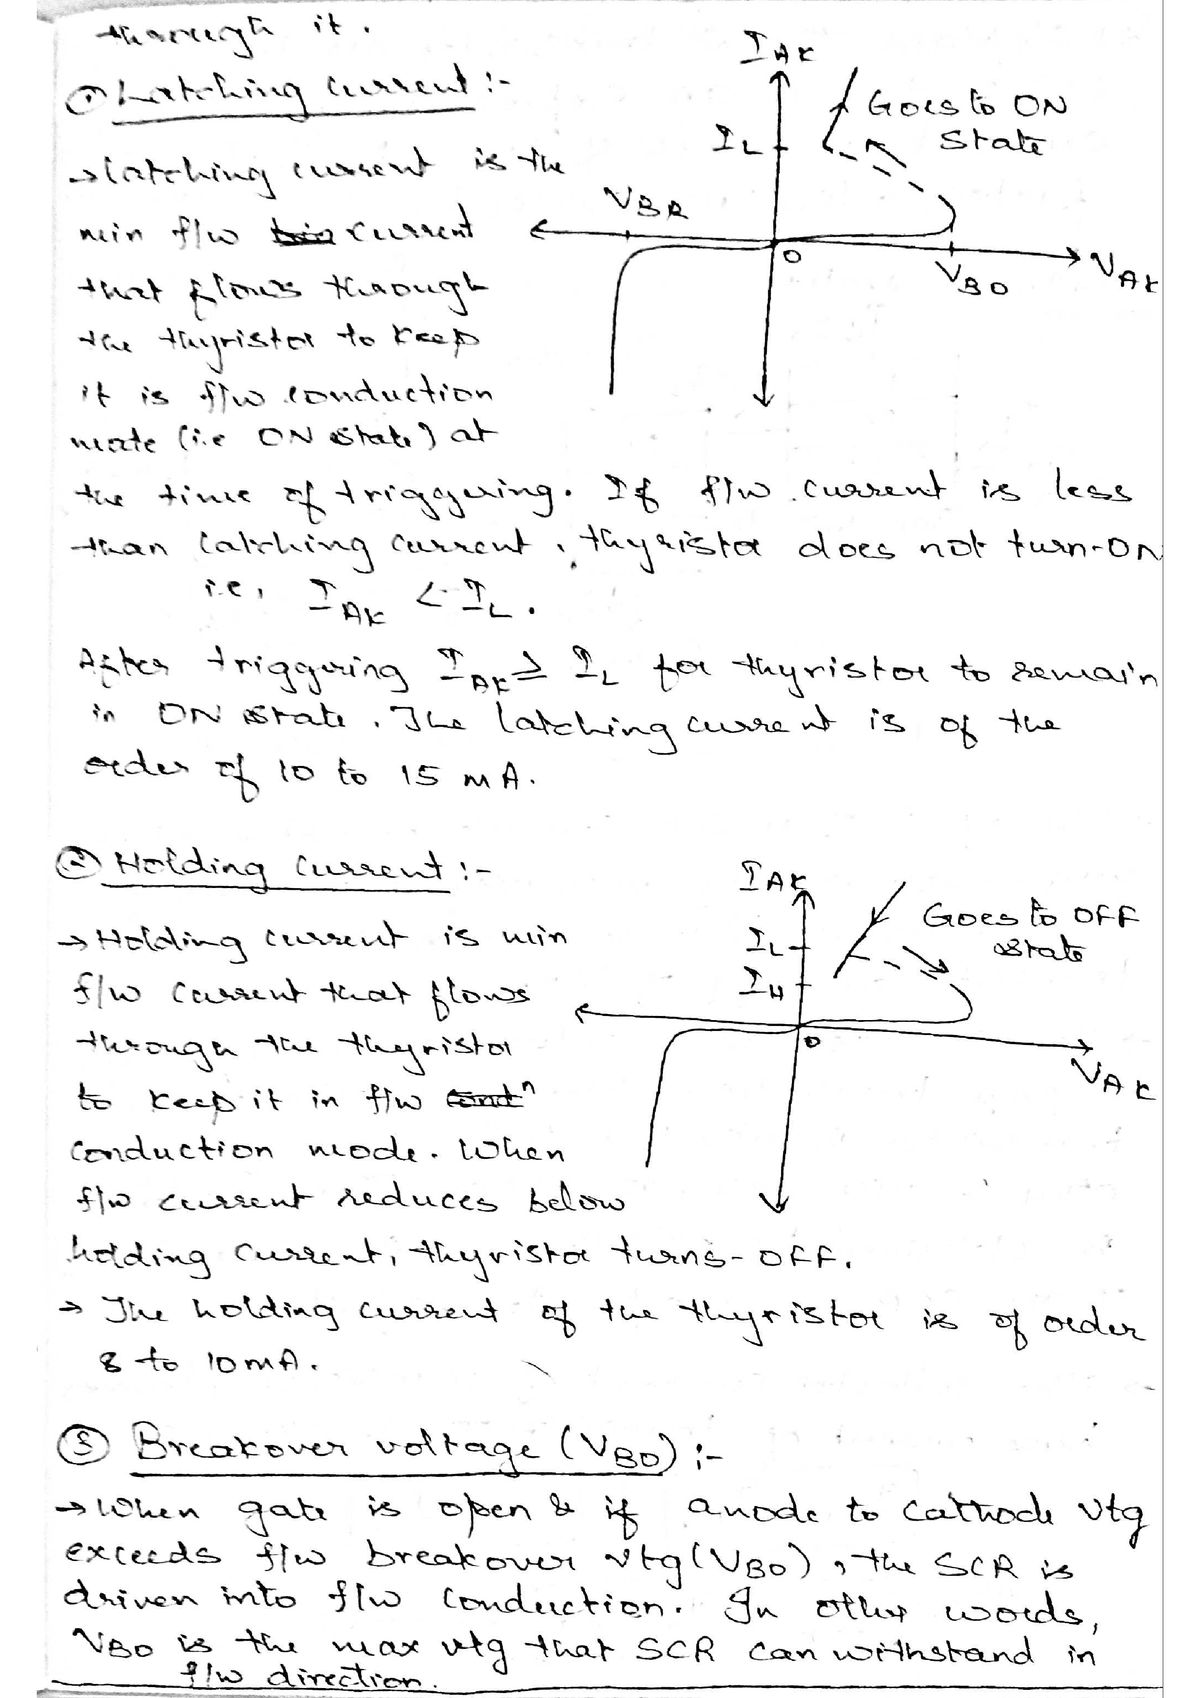 through it.
① Latching current :-
→ latching current is the
min f/w current
that flows through
the thyristor to keep
it is f/w conduction
mode (i.e ON state) at
the time of triggering. If f/w current is less
than latching current, thyristor does not turn-ON
i.e, I_AK < I_L.
After triggering I_AK ≥ I_L for thyristor to remain
in ON state. The latching current is of the
order of 10 to 15 mA.
I_AK
Goes to ON
State
I_L
V_BR
O
V_BO
V_AK
② Holding current :-
→ Holding current is min
f/w current that flows
through the thyristor
to keep it in f/w condn
conduction mode. When
f/w current reduces below
holding current, thyristor turns-OFF.
→ The holding current of the thyristor is of order
8 to 10mA.
I_AK
Goes to OFF
state
I_L
I_H
O
V_AK
③ Breakover voltage (V_BO) :-
→ When gate is open & if anode to cathode vtg
exceeds f/w breakover vtg (V_BO), the SCR is
driven into f/w conduction. In other words,
V_BO is the max vtg that SCR can withstand in
f/w direction.